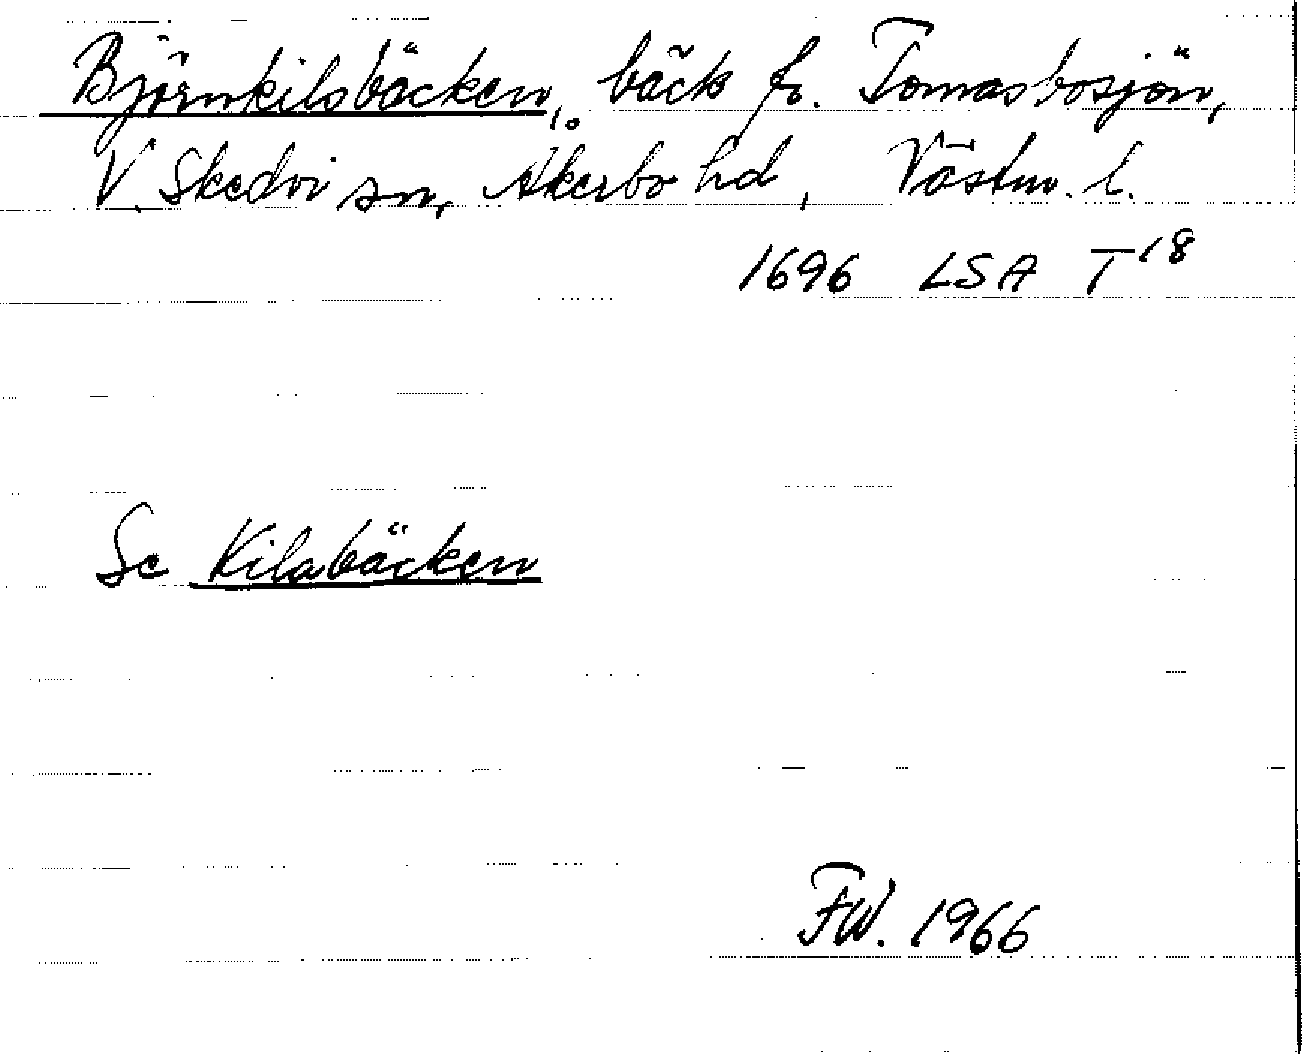 Björnkilsbäcken, bäck fr. Tomasbosjön,
V. Skedvi sn, Åkerbo hd, Västm. l.
1696 LSA T 18
Se Kilabäcken
FW. 1966